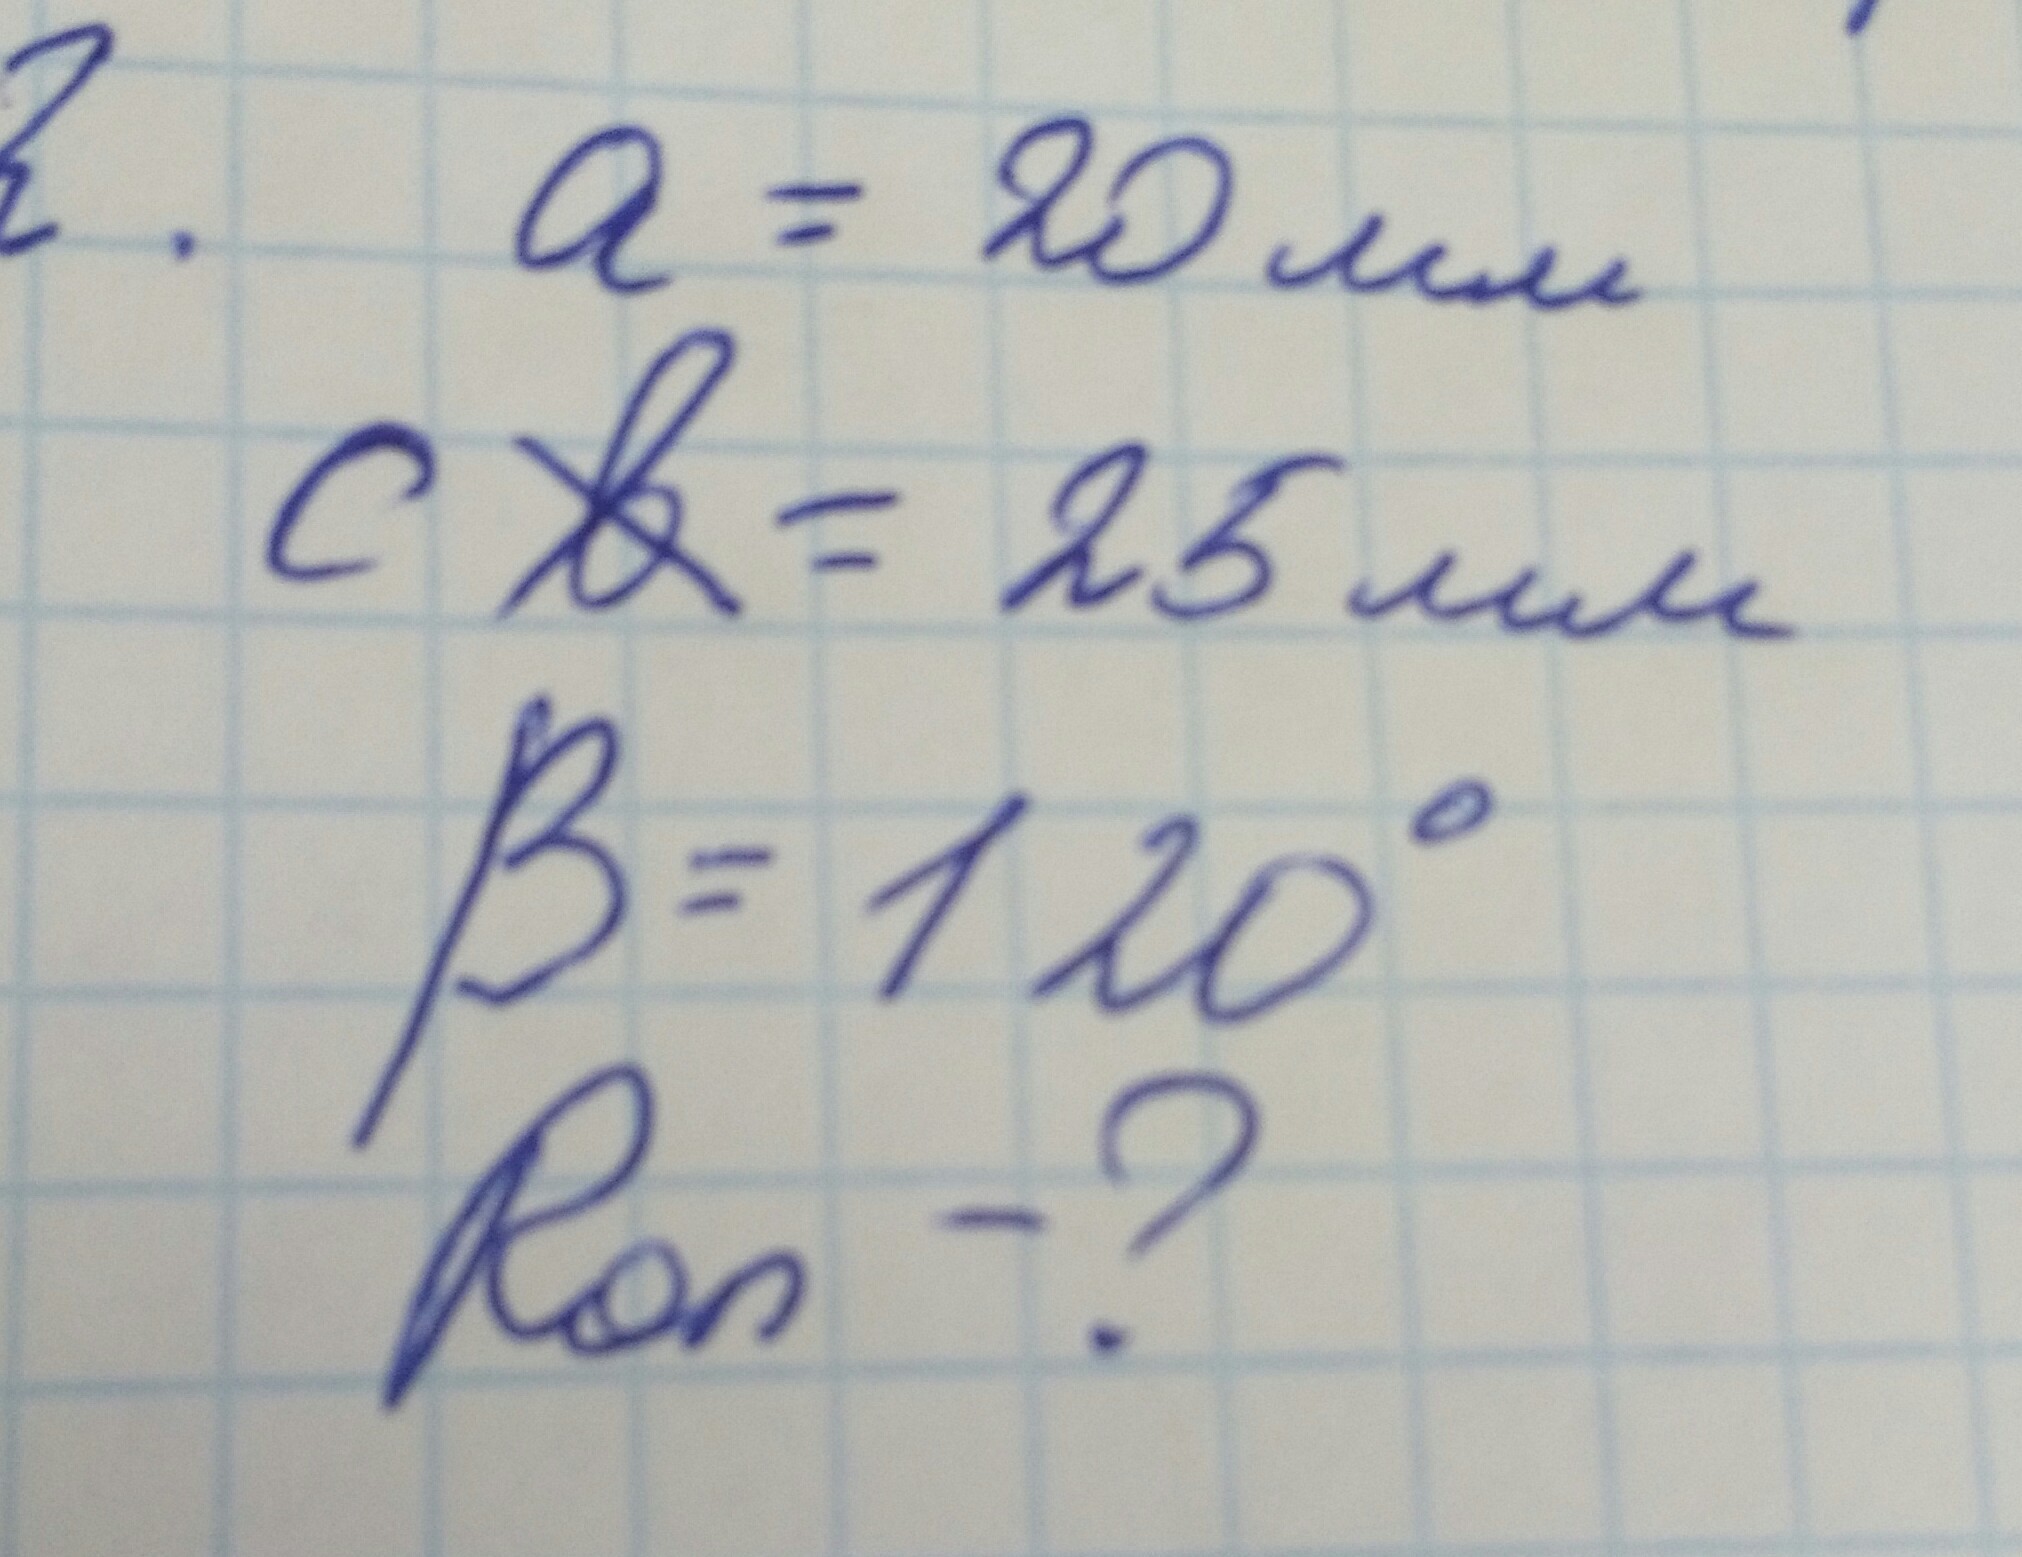 2. a = 20 мм
c = 25 мм
β = 120°
Rоп - ?